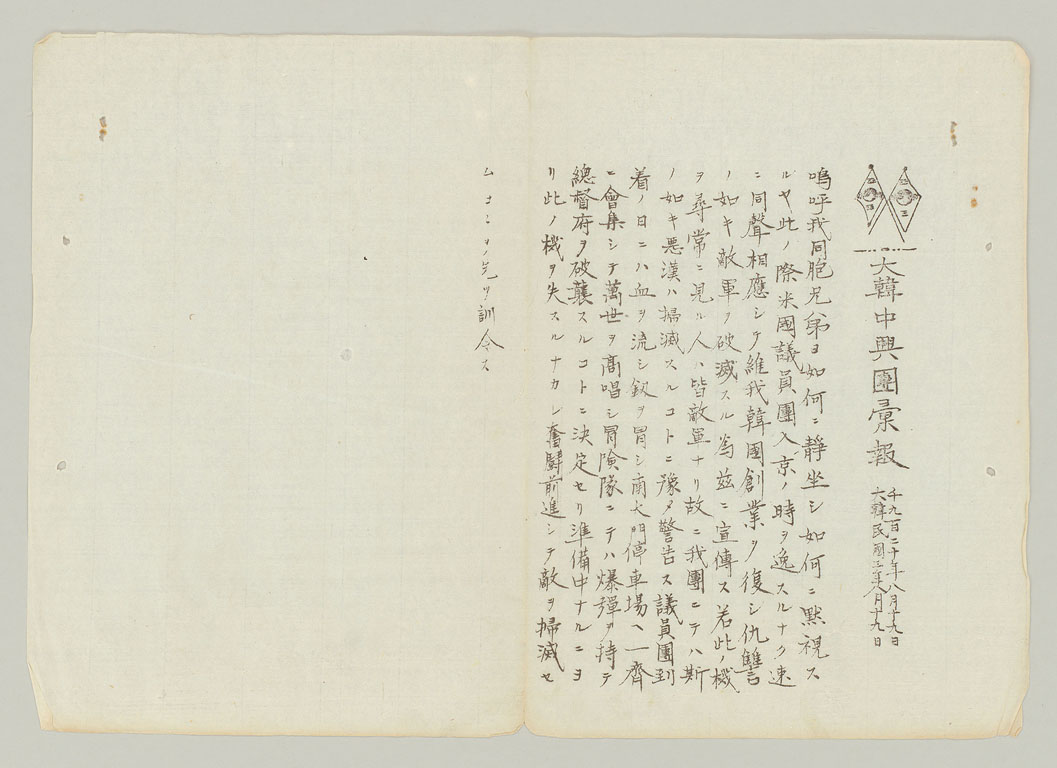 大韓中興團彙報
千九百二十年八月十九日
大韓民國二年八月十九日
嗚呼我同胞兄弟ヨ如何ニ靜坐シ如何ニ黙視ス
ルヤ此ノ際米國議員團入京ノ時ヲ逸スルナク速
ニ同聲相應シテ維我韓國創業ヲ復シ仇讐
ノ如キ敵軍ヲ破滅スル為茲ニ宣傳ス若此ノ機
ヲ尋常ニ見ル人ハ皆敵軍ナリ故ニ我團ニテハ斯
ノ如キ悪漢ハ掃滅スルコトニ豫メ警告ス議員團到
着ノ日ニハ血ヲ流シ釼ヲ冒シ南大門停車場ヘ一齊
ニ會集シテ萬世ヲ高唱シ冒険隊ニテハ爆彈ヲ持テ
總督府ヲ破襲スルコトニ決定セリ準備中ナルニヨ
リ此ノ機ヲ失スルナカレ奮鬪前進シテ敵ヲ掃滅セ
ムコトヲ先ツ訓令ス